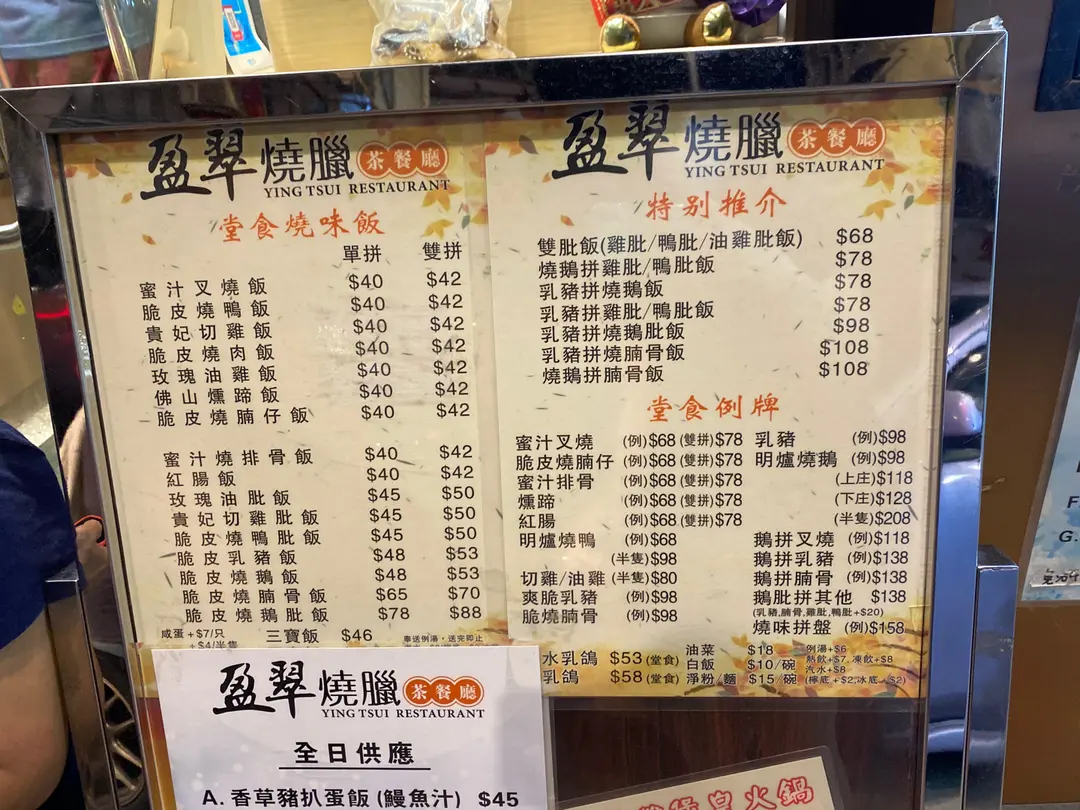 盈翠燒臘 茶餐廳
YING TSUI RESTAURANT
堂食燒味飯
單拼 雙拼
蜜汁叉燒飯 $40 $42
脆皮燒鴨飯 $40 $42
貴妃切雞飯 $40 $42
脆皮燒肉飯 $40 $42
玫瑰油雞飯 $40 $42
佛山燻蹄飯 $40 $42
脆皮燒腩仔飯 $40 $42
蜜汁燒排骨飯 $40 $42
紅腸飯 $40 $42
玫瑰油肶飯 $45 $50
貴妃切雞肶飯 $45 $50
脆皮燒鴨肶飯 $45 $50
脆皮乳豬飯 $48 $53
脆皮燒鵝飯 $48 $53
脆皮燒腩骨飯 $65 $70
脆皮燒鵝肶飯 $78 $88
咸蛋+$7/只 三寶飯 $46 奉送例湯，送完即止
+$4/半隻
盈翠燒臘 茶餐廳
YING TSUI RESTAURANT
特別推介
雙肶飯(雞肶/鴨肶/油雞肶飯) $68
燒鵝拼雞肶/鴨肶飯 $78
乳豬拼燒鵝飯 $78
乳豬拼雞肶/鴨肶飯 $78
乳豬拼燒鵝肶飯 $98
乳豬拼燒腩骨飯 $108
燒鵝拼腩骨飯 $108
堂食例牌
蜜汁叉燒 (例)$68 (雙拼)$78 乳豬 (例)$98
脆皮燒腩仔 (例)$68 (雙拼)$78 明爐燒鵝 (例)$98
蜜汁排骨 (例)$68 (雙拼)$78 (上庄)$118
燻蹄 (例)$68 (雙拼)$78 (下庄)$128
紅腸 (例)$68 (雙拼)$78 (半隻)$208
明爐燒鴨 (例)$68 鵝拼叉燒 (例)$118
(半隻)$98 鵝拼乳豬 (例)$138
切雞/油雞 (半隻)$80 鵝拼腩骨 (例)$138
爽脆乳豬 (例)$98 鵝肶拼其他 $138
(乳豬,腩骨,雞肶,鴨肶+$20)
脆燒腩骨 (例)$98 燒味拼盤 (例)$158
水乳鴿 $53 (堂食) 油菜 $18 例湯+$6
白飯 $10/碗 熱飲+$7, 凍飲+$8
汽水+$8
乳鴿 $58 (堂食) 淨粉/麵 $15/碗 (檸底+$2,冰底+$2)
盈翠燒臘 茶餐廳
YING TSUI RESTAURANT
全日供應
A. 香草豬扒蛋飯(鰻魚汁) $45
皇火鍋
F
G.